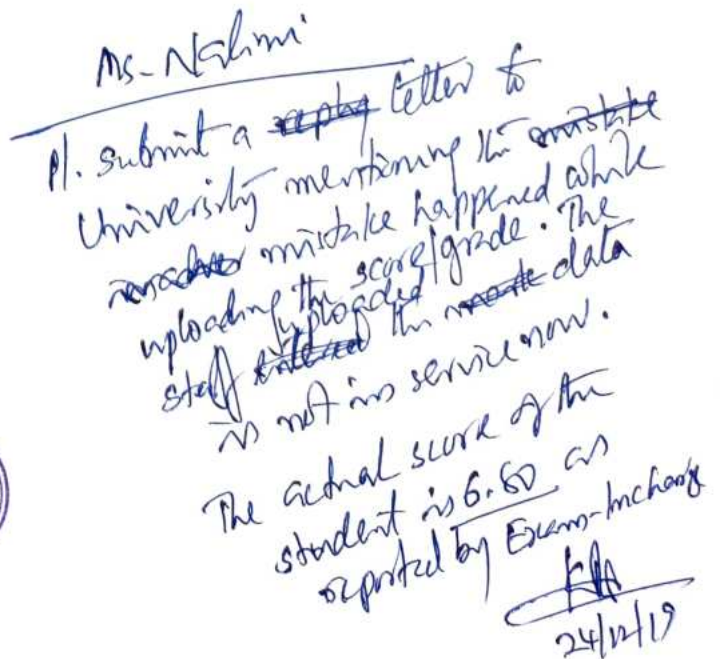 Ms. Nalini
Pl. submit a letter to
University mentioning the
mistake happened while
uploading the score/grade. The
staff uploaded the data
is not in service now.
The actual score of the
student is 6.60 as
reported by Exam-Incharge
24/12/19